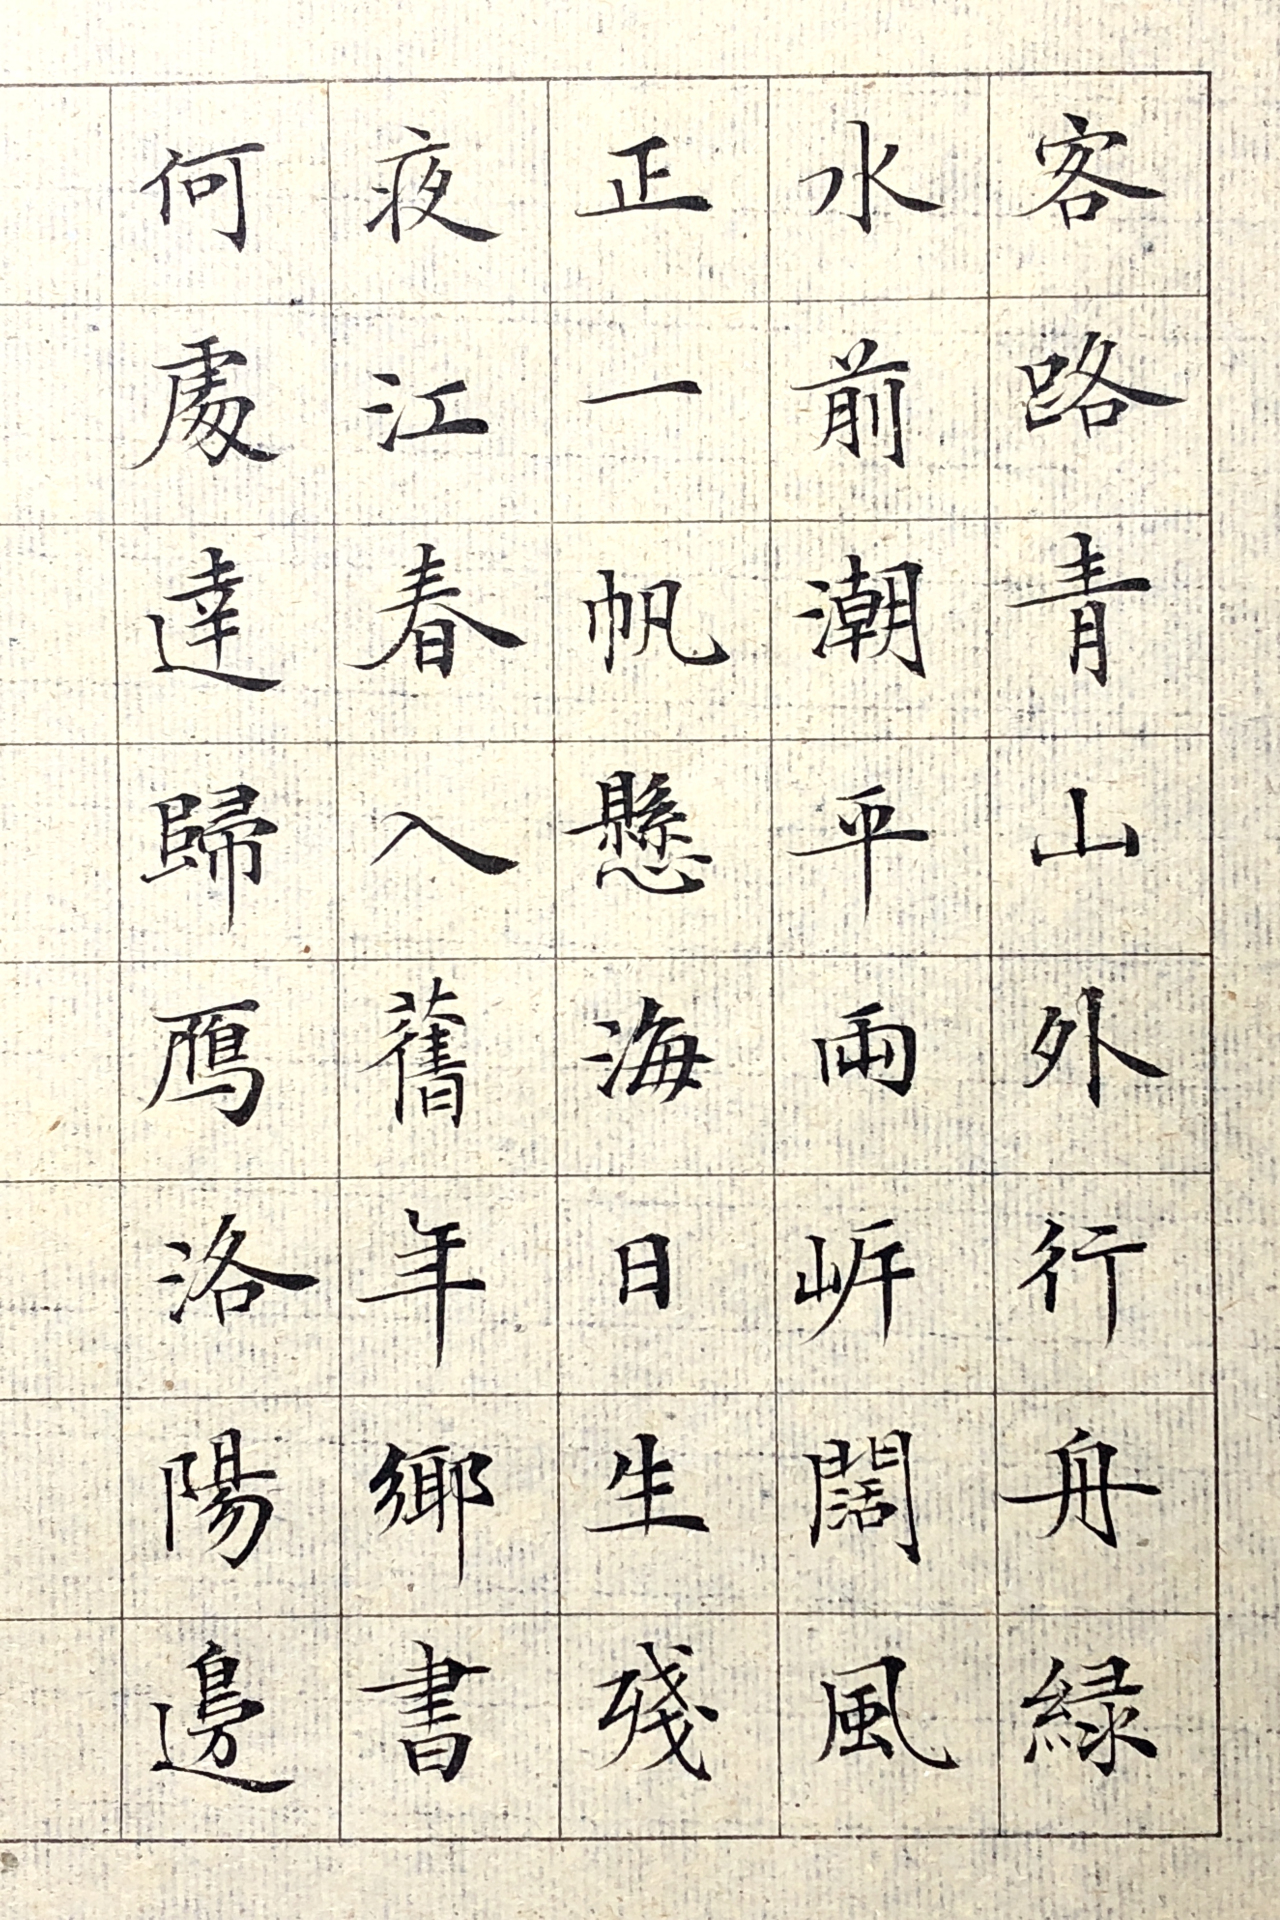 客路青山外行舟緑
水前潮平兩岍闊風
正一帆懸海日生殘
夜江春入舊年鄉書
何處達歸鴈洛陽邊